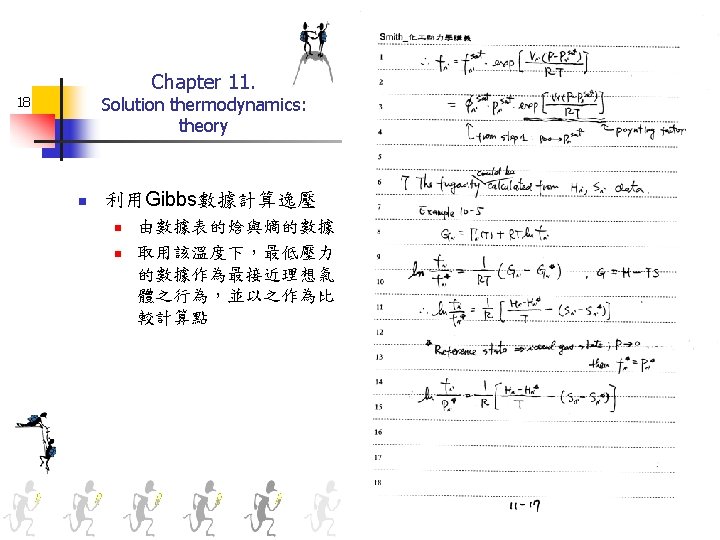 18
Chapter 11.
Solution thermodynamics:
theory
利用Gibbs數據計算逸壓
由數據表的焓與熵的數據
取用該溫度下，最低壓力
的數據作為最接近理想氣
體之行為，並以之作為比
較計算點
Smith_化工熱力學講義
1 ∴ fᵢ = fᵢ^sat · exp[Vᵢ(P-Pᵢ^sat)/RT]
2
3 = φᵢ^sat · Pᵢ^sat · exp[Vᵢ(P-Pᵢ^sat)/RT]
4 from step 1 P→0→Pᵢ^sat poynting factor
5
could be
6 The fugacity calculated from Hᵢ, Sᵢ data.
7 Example 10-5
8 Gᵢ = Γᵢ(T) + RT ln fᵢ
9
10 ln fᵢ/fᵢ* = 1/RT (Gᵢ - Gᵢ*) , G = H - TS
11 ∴ ln fᵢ/fᵢ* = 1/R [(Hᵢ-Hᵢ*)/T - (Sᵢ-Sᵢ*)]
12
* Reference state ⇒ ideal gas state, P→0
13 then fᵢ* = Pᵢ*
14
15 ln fᵢ/Pᵢ* = 1/R [(Hᵢ-Hᵢ*)/T - (Sᵢ-Sᵢ*)]
16
17
18
11-17